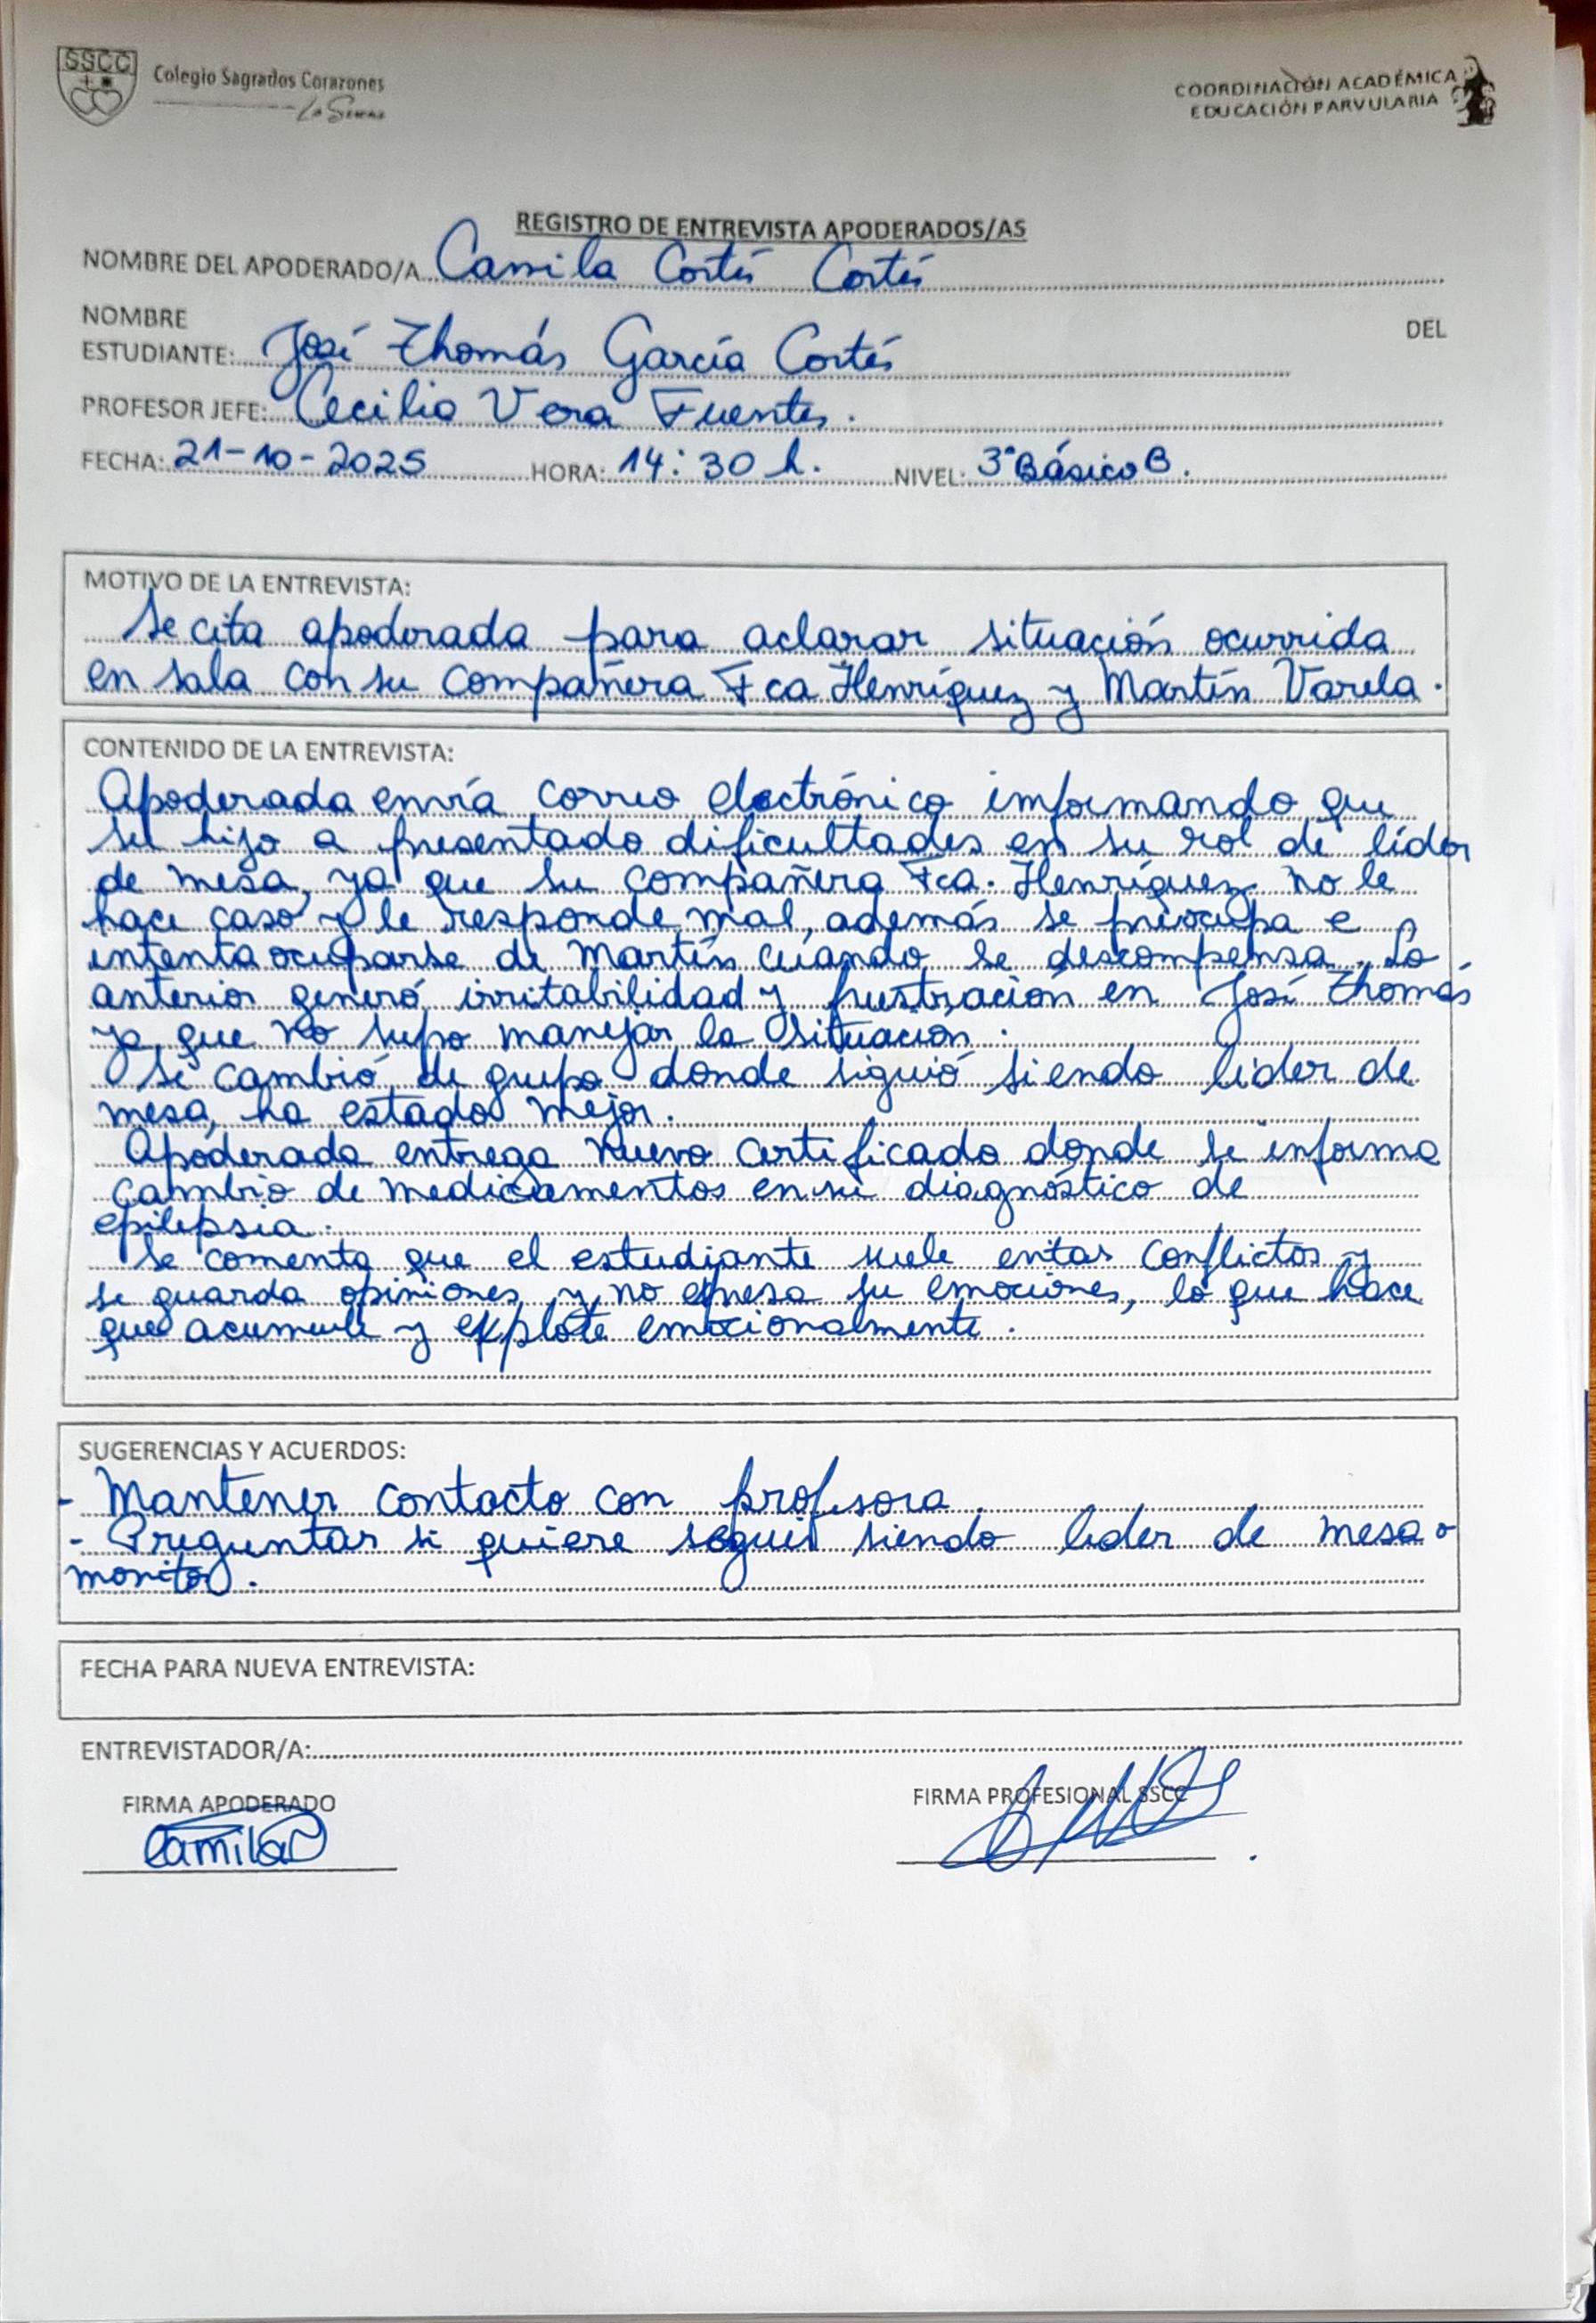 SSCC
Colegio Sagrados Corazones
La Serena
COORDINACIÓN ACADÉMICA
EDUCACIÓN PARVULARIA
REGISTRO DE ENTREVISTA APODERADOS/AS
NOMBRE DEL APODERADO/A Camila Cortés Cortés
NOMBRE DEL
ESTUDIANTE: José Thomás García Cortés
PROFESOR JEFE: Cecilia Vera Fuentes.
FECHA: 21-10-2025 HORA: 14:30 h. NIVEL: 3° Básico B.
MOTIVO DE LA ENTREVISTA:
Se cita apoderada para aclarar situación ocurrida
en sala con su compañera Fca Henríquez y Martín Varela.
CONTENIDO DE LA ENTREVISTA:
Apoderada envía correo electrónico informando que
su hijo a presentado dificultades en su rol de líder
de mesa, ya que su compañera Fca. Henríquez no le
hace caso y le responde mal, además se preocupa e
intenta ocuparse de Martín cuando se descompensa. Lo
anterior generó irritabilidad y frustración en José Thomás
ya que no supo manejar la situación.
Se cambió de grupo donde siguió siendo líder de
mesa, ha estado mejor.
Apoderada entrega nuevo certificado donde se informa
cambio de medicamentos en su diagnóstico de
epilepsia.
Se comenta que el estudiante suele evitar conflictos y
se guarda opiniones y no expresa su emociones, lo que hace
que acumule y explote emocionalmente.
SUGERENCIAS Y ACUERDOS:
- Mantener contacto con profesora.
- Preguntar si quiere seguir siendo líder de mesa o
monitor.
FECHA PARA NUEVA ENTREVISTA:
ENTREVISTADOR/A:
FIRMA APODERADO FIRMA PROFESIONAL SSCC
Camila C